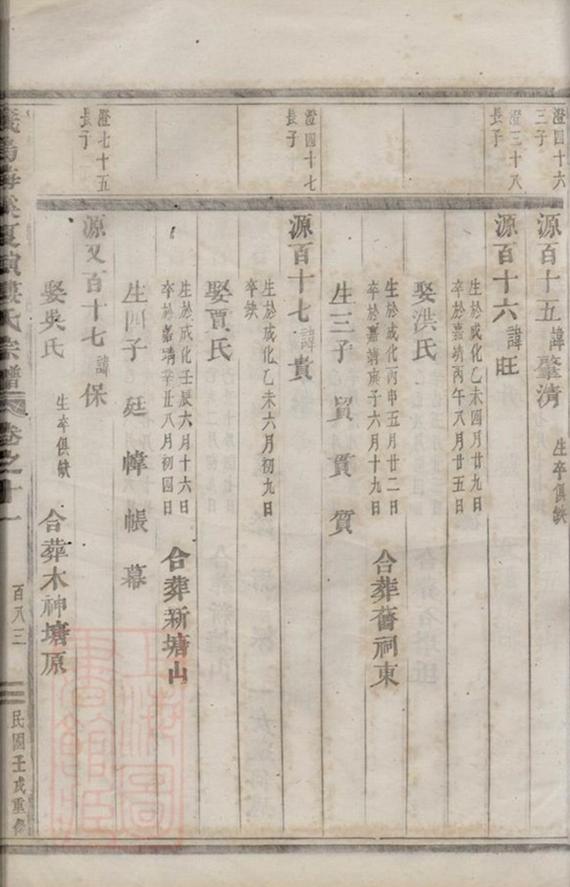 澄四十六
三子
源百十五諱肇清
生卒俱缺
澄三十八
長子
源百十六諱旺
生於成化乙未四月廿九日
卒於嘉靖丙午八月廿五日
娶洪氏
生於成化丙申五月廿二日
卒於嘉靖庚子六月十九日
合葬舊祠東
生三子 貿 貭 質
澄四十七
長子
源百十七諱貴
生於成化乙未六月初九日
卒缺
娶賈氏
生於成化壬辰六月十六日
卒於嘉靖辛丑八月初四日
合葬新塘山
生四子 廷 幃 帳 幕
澄七十五
長子
源又百十七諱保
娶吳氏
生卒俱缺
合葬木神塘原
氏宗譜
卷之十一
百八三
民國壬戌重修